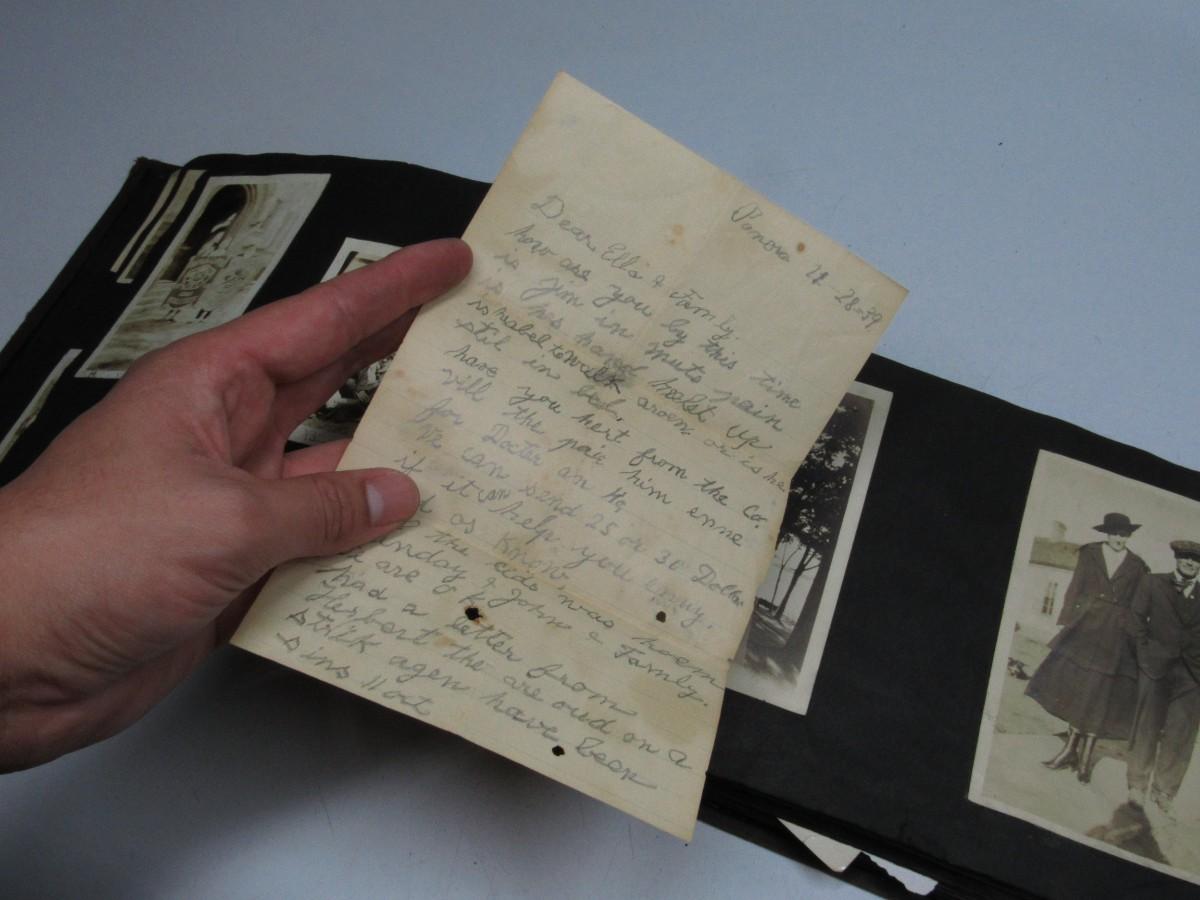 Panora 11-28-39
Dear Ella & Family,
how are you by this time
is Jim in muts pain
is hes hand holst up
is habel to walk aroen or is he
stil in bed,
have you hert from the Co.
will the pair him enne
for Docter an Hq
We can send 25 or 30 Dollar
if it can help you enny.
as know
the cids was hoem
& John & Family.
are ok
had a letter from
Herbert the are oud on a
strik agen have been
sins 11 oct